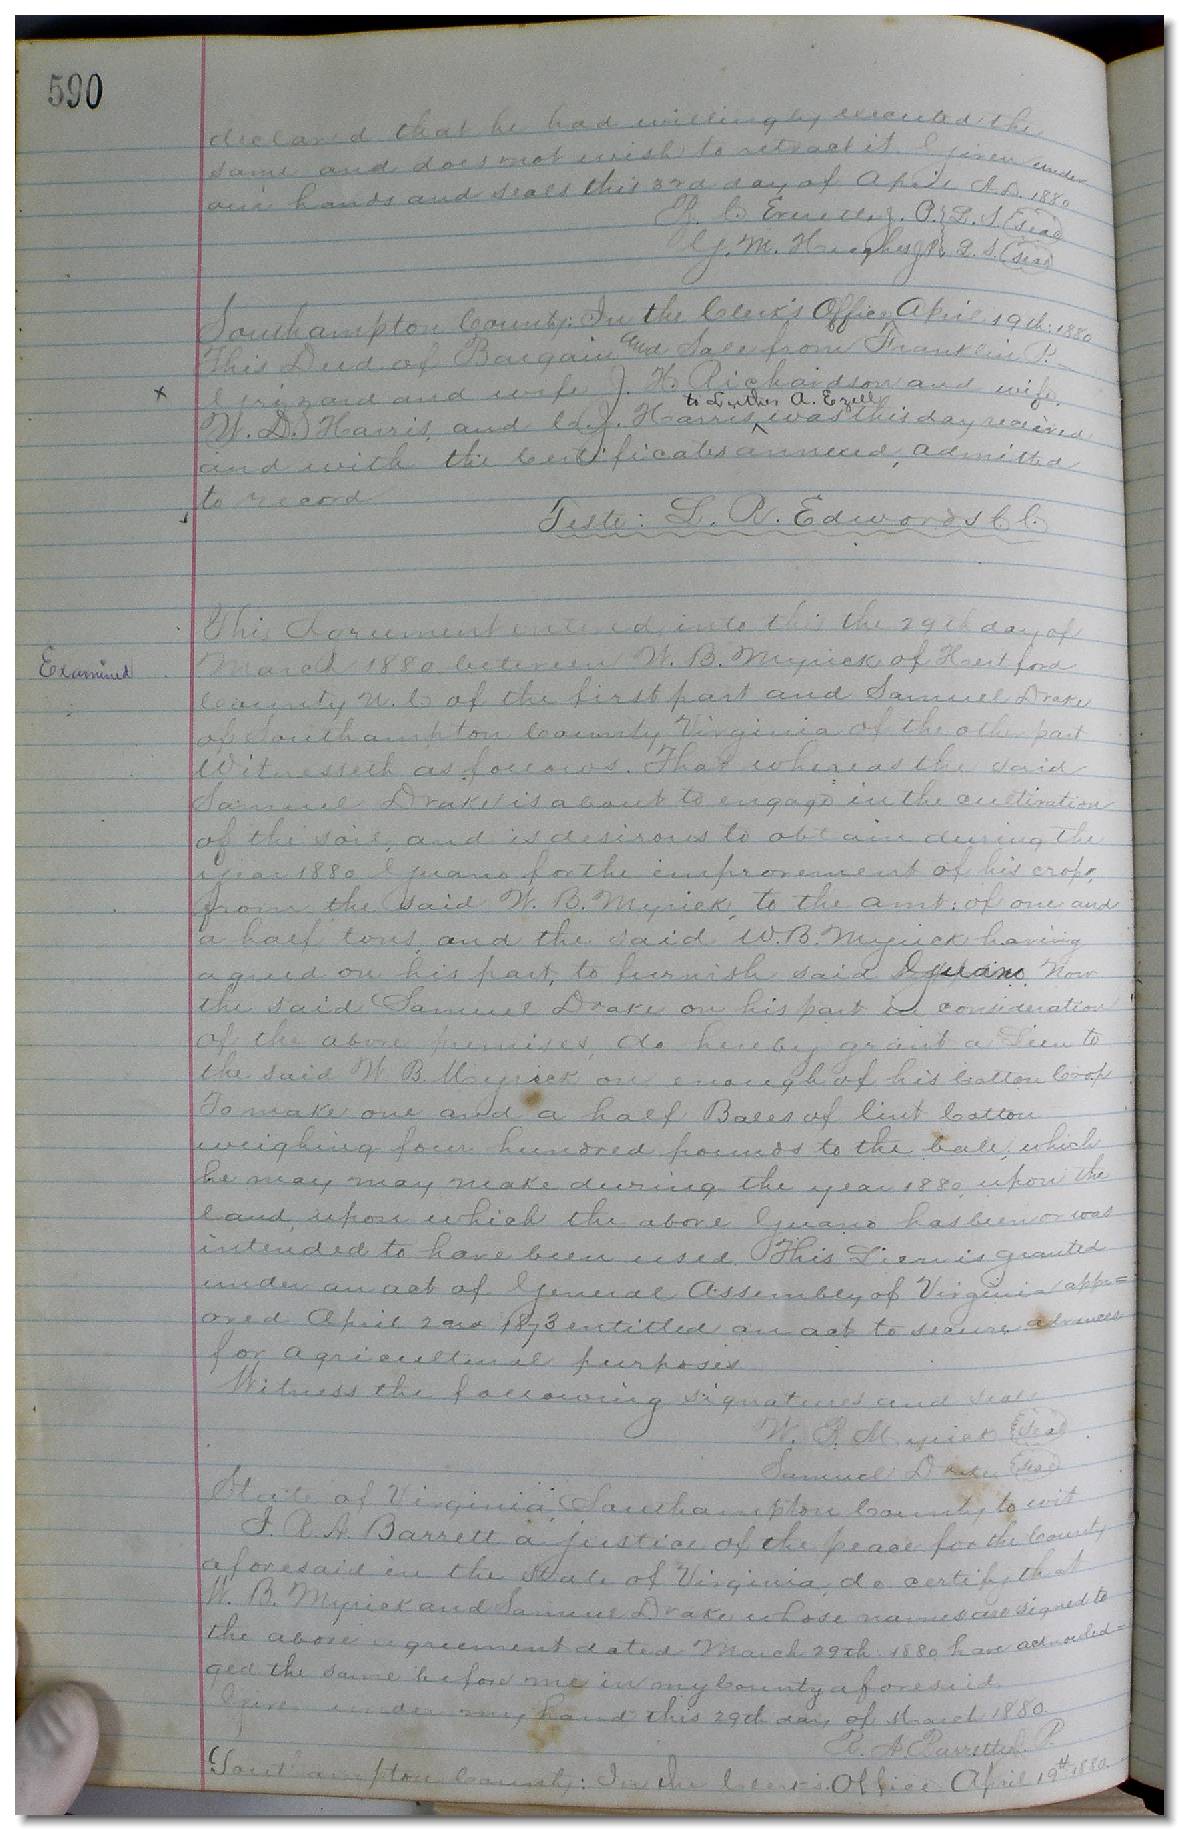 590
declared that he had willingly executed the
same and does not wish to retract it. Given under
our hands and seals this 3rd day of April A.D. 1880
J. P. (Seal)
G. M. Hughes J.P. (Seal)
Southampton County: In the Clerk's Office April 19th: 1880
This Deed of Bargain and Sale from Franklin P.
Grizard and wife J. H. Richardson and wife,
to Luther A. Ezell
W. D. Harris, and J. Harris ^ was this day received
and with the Certificates annexed, admitted
to record
Teste: L. R. Edwards C. C.
This Agreement entered into this the 29th day of
Examined
March 1880 between W. B. Myrick of Hertford
County N. C of the first part and Samuel Drake
of Southampton County Virginia of the other part
Witnesseth as follows. That whereas the said
Samuel Drake is about to engage in the cultivation
of the soil, and is desirous to obtain during the
year 1880 Guano for the improvement of his crops,
from the said W. B. Myrick, to the amt: of one and
a half tons, and the said W. B. Myrick having
agreed on his part, to furnish said Guano, Now
the said Samuel Drake on his part in consideration
of the above premises, do hereby grant a Lien to
the said W. B. Myrick on enough of his Cotton Crop
To make one and a half Bales of lint Cotton
weighing four hundred pounds to the bale, which
he may may make during the year 1880, upon the
land, upon which the above Guano has been or was
intended to have been used. This Lien is granted
under an act of General Assembly of Virginia appr=
oved April 2nd 1873 entitled an act to secure advances
for agricultural purposes
Witness the following signatures and seals
W. B. Myrick (Seal)
Samuel Drake (Seal)
State of Virginia, Southampton County to wit
I. R. A. Barrett a justice of the peace for the County
aforesaid in the State of Virginia, do certify that
W. B. Myrick and Samuel Drake whose names are signed to
the above agreement dated March 29th 1880, have acknowled=
ged the same before me in my County aforesaid
Given under my hand this 29th day of March 1880.
R. A. Barrett J. P.
Southampton County: In the Clerk's Office April 19th 1880.